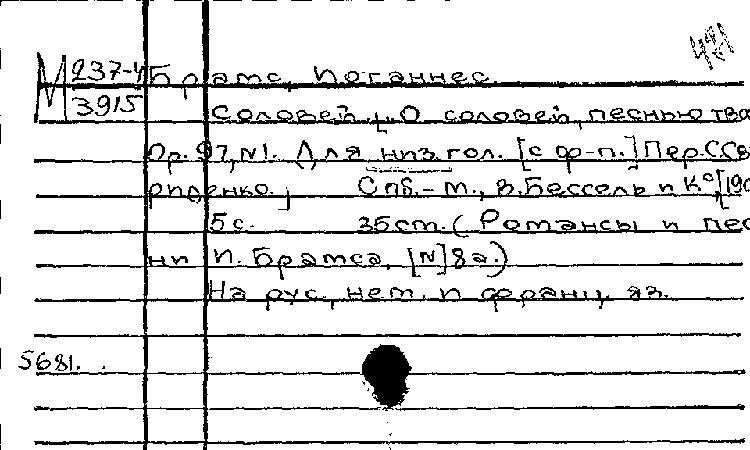 421
М 237-4
3915
Брамс, Иоганнес.
Соловей [„О соловей, песнью тво
Op. 97, N1. Для низ. гол. [с ф-п.] Пер. С. Св
риденко.] Спб.-М., В. Бессель и К°, [190
5 с. 35 cm. (Романсы и пес
ни И. Брамса, [N] 8а.)
На рус., нем. и франц. яз.
5681.